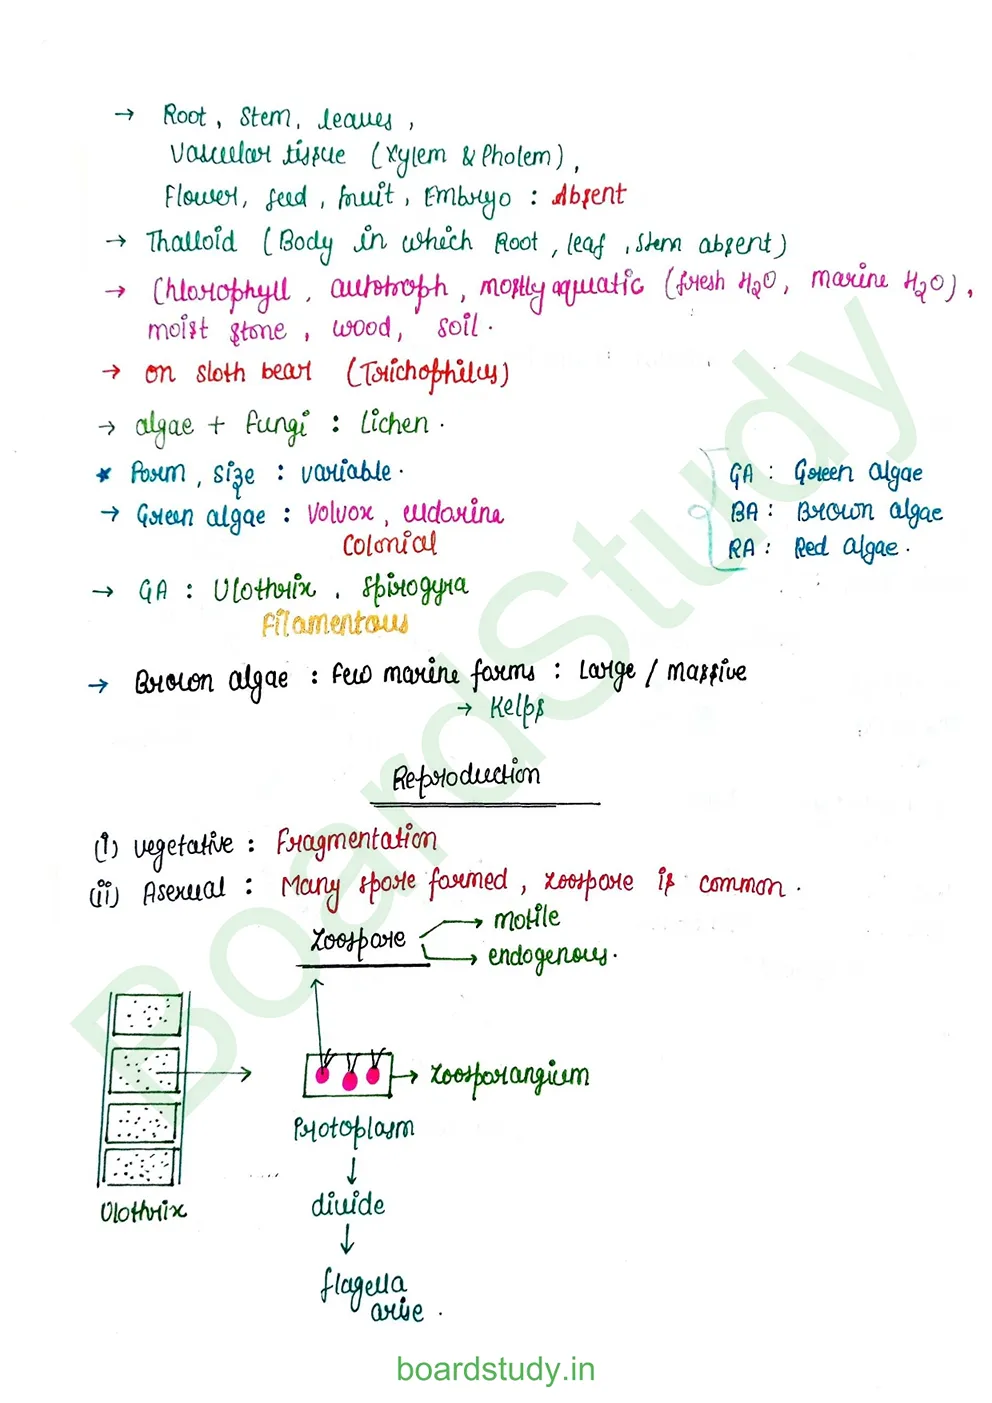 → Root, Stem, leaves,
Vascular tissue (Xylem & Pholem),
Flower, seed, fruit, Embryo : Absent
→ Thalloid (Body in which Root, leaf, stem absent)
→ Chlorophyll, autotroph, mostly aquatic (fresh H2O, marine H2O),
moist stone, wood, soil.
→ on sloth bear (Trichophilus)
→ algae + Fungi : Lichen.
* Form, size : variable.
→ Green algae : Volvox, eudorine
Colonial
GA : Green algae
BA : Brown algae
RA : Red algae.
→ GA : Ulothrix, Spirogyra
Filamentous
→ Brown algae : Few marine forms : Large / massive
→ Kelps
Reproduction
(i) vegetative : Fragmentation
(ii) Asexual : Many spore formed, zoospore is common.
Zoospore → motile
→ endogenous.
→ Zoosporangium
Protoplasm
↓
Ulothrix
divide
↓
flagella
arise.
boardstudy.in
BoardStudy